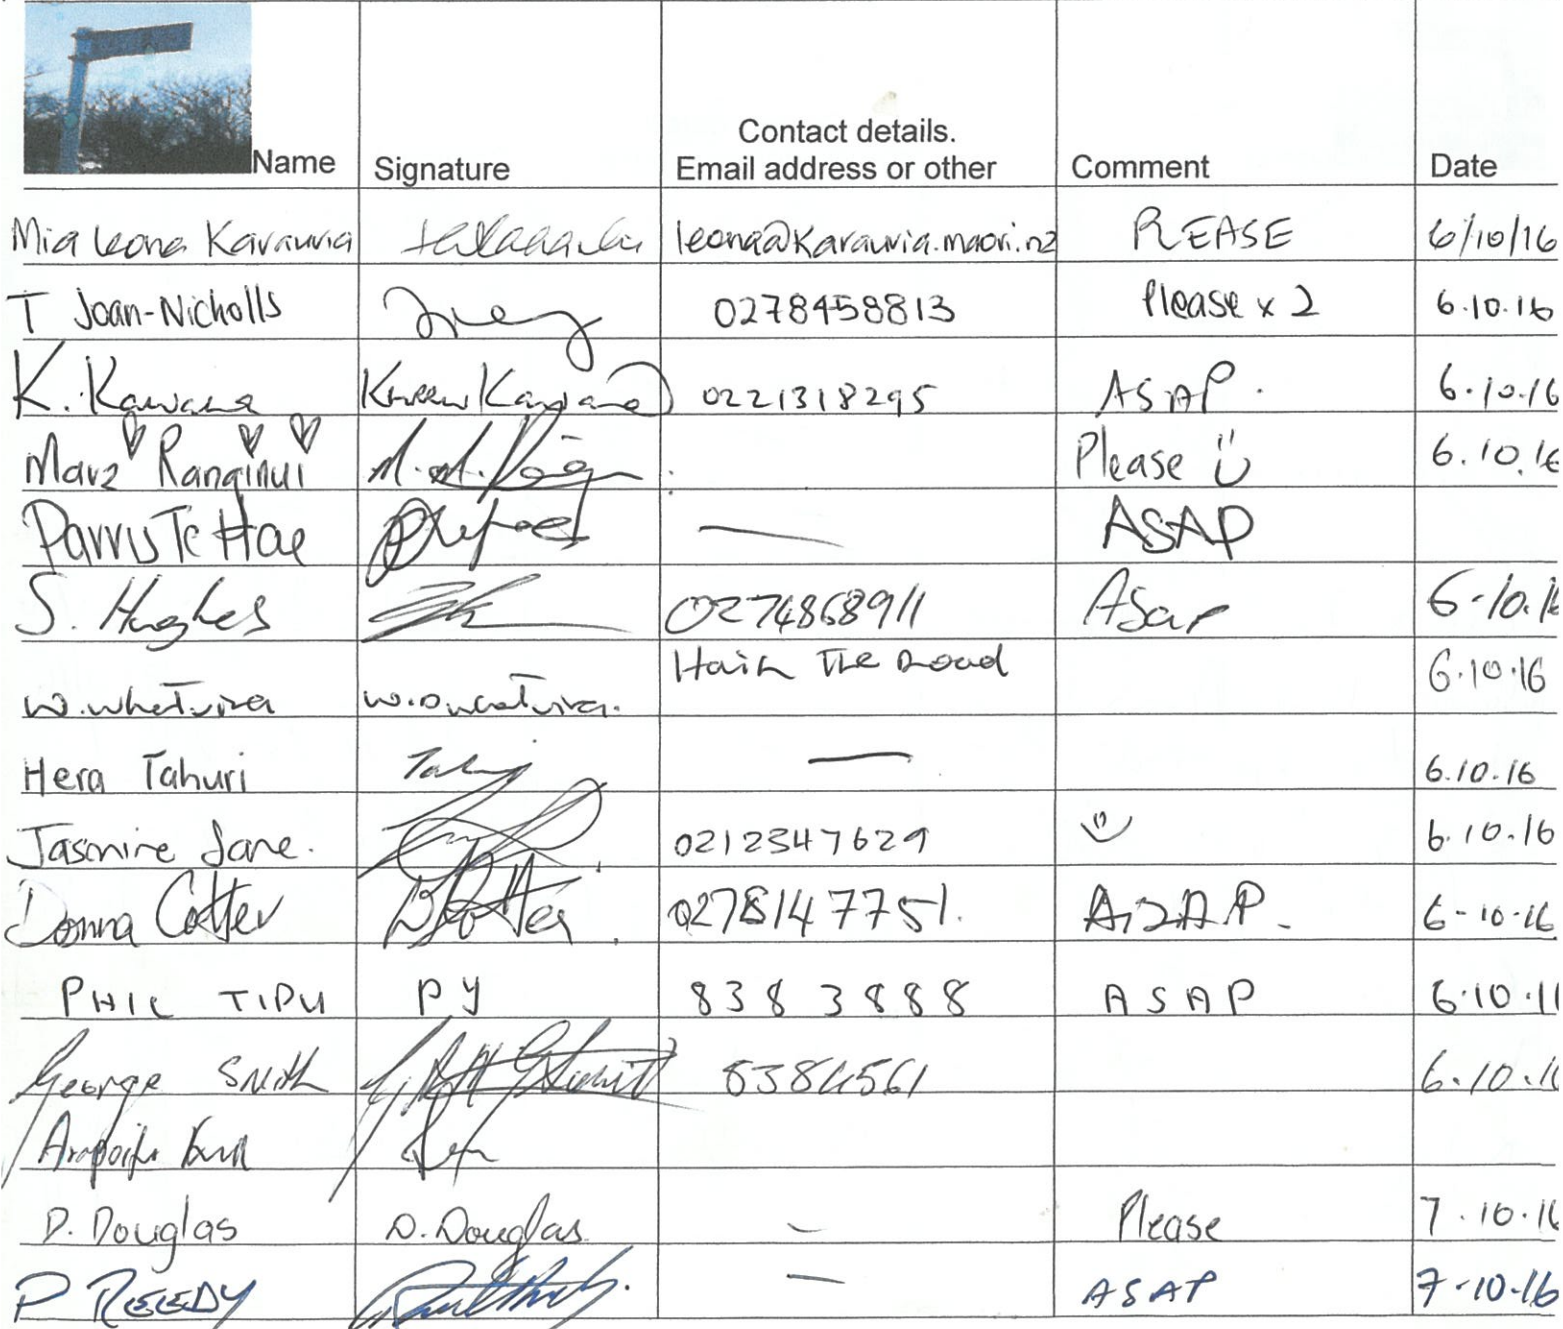 Contact details.
Name Signature Email address or other Comment Date
Mia Leona Karauria leona@Karauria.maori.nz PLEASE 6/10/16
T Joan-Nicholls 0278458813 Please x 2 6.10.16
K. Kawana Kawana 0221318295 ASAP. 6.10.16
Marz Ranginui Please 6.10.16
Parrys Te Hae — ASAP
S. Hughes 0274868911 ASap 6-10.1
W. Whatuira The Road 6.10.16
Hera Tahuri — 6.10.16
Jasmine Jane. 0212347629 6.10.16
Donna Cotter DCotter 0278147751. ASAP. 6-10-16
PHIL TIPU PY 838 3888 ASAP 6.10.1
George Smith 8384561 6.10.1
D. Douglas D. Douglas — Please 7.10.16
P REEDY — ASAP 7-10-16